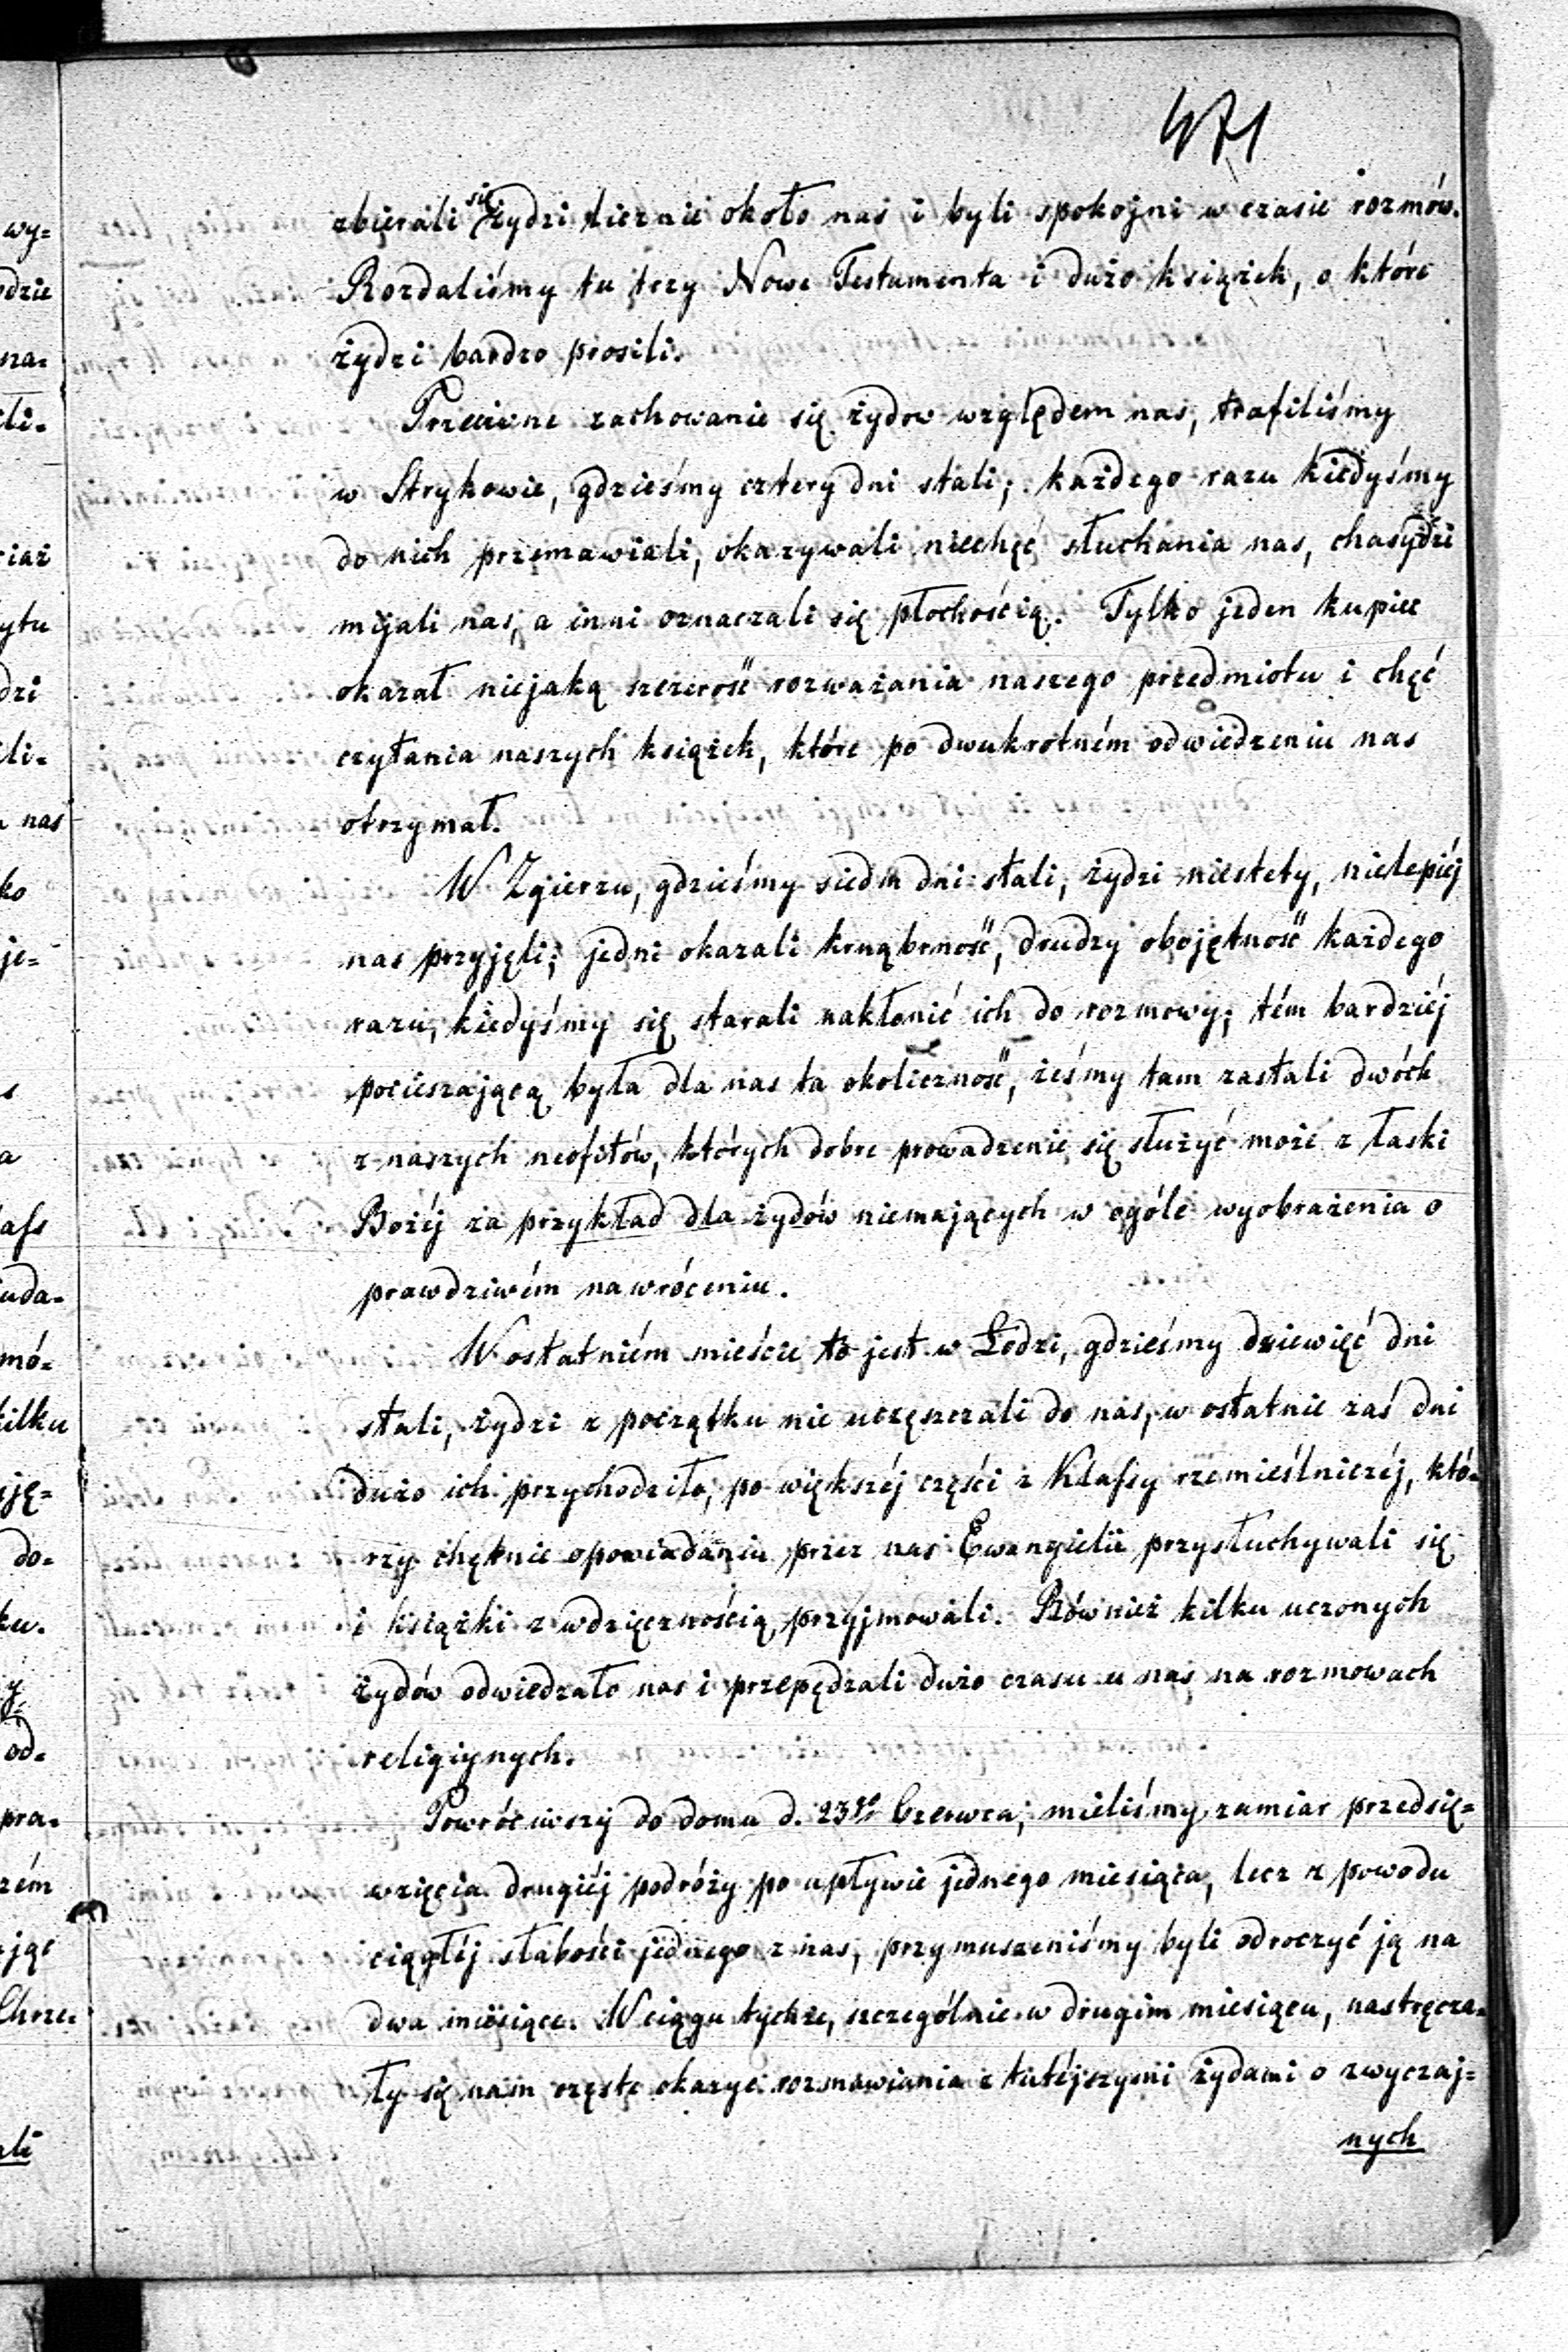 471
zbierali się żydzi licznie około nas i byli spokojni w czasie rozmów.
Rozdaliśmy tu trzy Nowe Testamenta i dużo książek, o które
żydzi bardzo prosili.
Przeciwne zachowanie się żydow względem nas, trafiliśmy
w Strykowie, gdzieśmy cztery dni stali; każdego razu kiedyśmy
do nich przemawiali, okazywali niechęć słuchania nas, chasydzi
mijali nas, a inni oznaczali się płochością. Tylko jeden kupiec
okazał niejaką szczerość rozważania naszego przedmiotu i chęć
czytania naszych książek, które po dwukrotném odwiedzeniu nas
otrzymał.
W Zgierzu, gdzieśmy siedm dni stali, żydzi niestety, nielepiéj
nas przyjęli; jedni okazali krnąbrność, drudzy obojętność każdego
razu, kiedyśmy się starali nakłonić ich do rozmowy; tém bardziéj
pocieszającą była dla nas ta okoliczność, żeśmy tam zastali dwóch
z naszych neofitów, których dobre prowadzenie się służyć może z łaski
Bożéj za przykład dla żydów niemających w ogóle wyobrażenia o
prawdziwém nawróceniu.
W ostatniém mieście to jest w Łodzi, gdzieśmy dziewięć dni
stali, żydzi z początku nie uczęszczali do nas, w ostatnie zaś dni
dużo ich przychodziło, po większéj części z Klassy rzemieślniczéj, któ-
rzy chętnie opowiadaniu przez nas Ewangielii przysłuchywali się
i książki z wdzięcznością przyjmowali. Również kilku uczonych
żydów odwiedzało nas i przepędzali dużo czasu u nas na rozmowach
religijnych.
Powróciwszy do domu d. 23go Czerwca, mieliśmy zamiar przedsię=
wzięcia drugiéj podróży po upływie jednego miesiąca, lecz z powodu
ciągłéj słabości jednego z nas, przymuszeniśmy byli odroczyć ją na
dwa miesiące. W ciągu tychże, szczególnie w drugim miesiącu, nastręcza=
ły się nam częste okazye rozmawiania z tutéjszymi żydami o zwyczaj=
nych